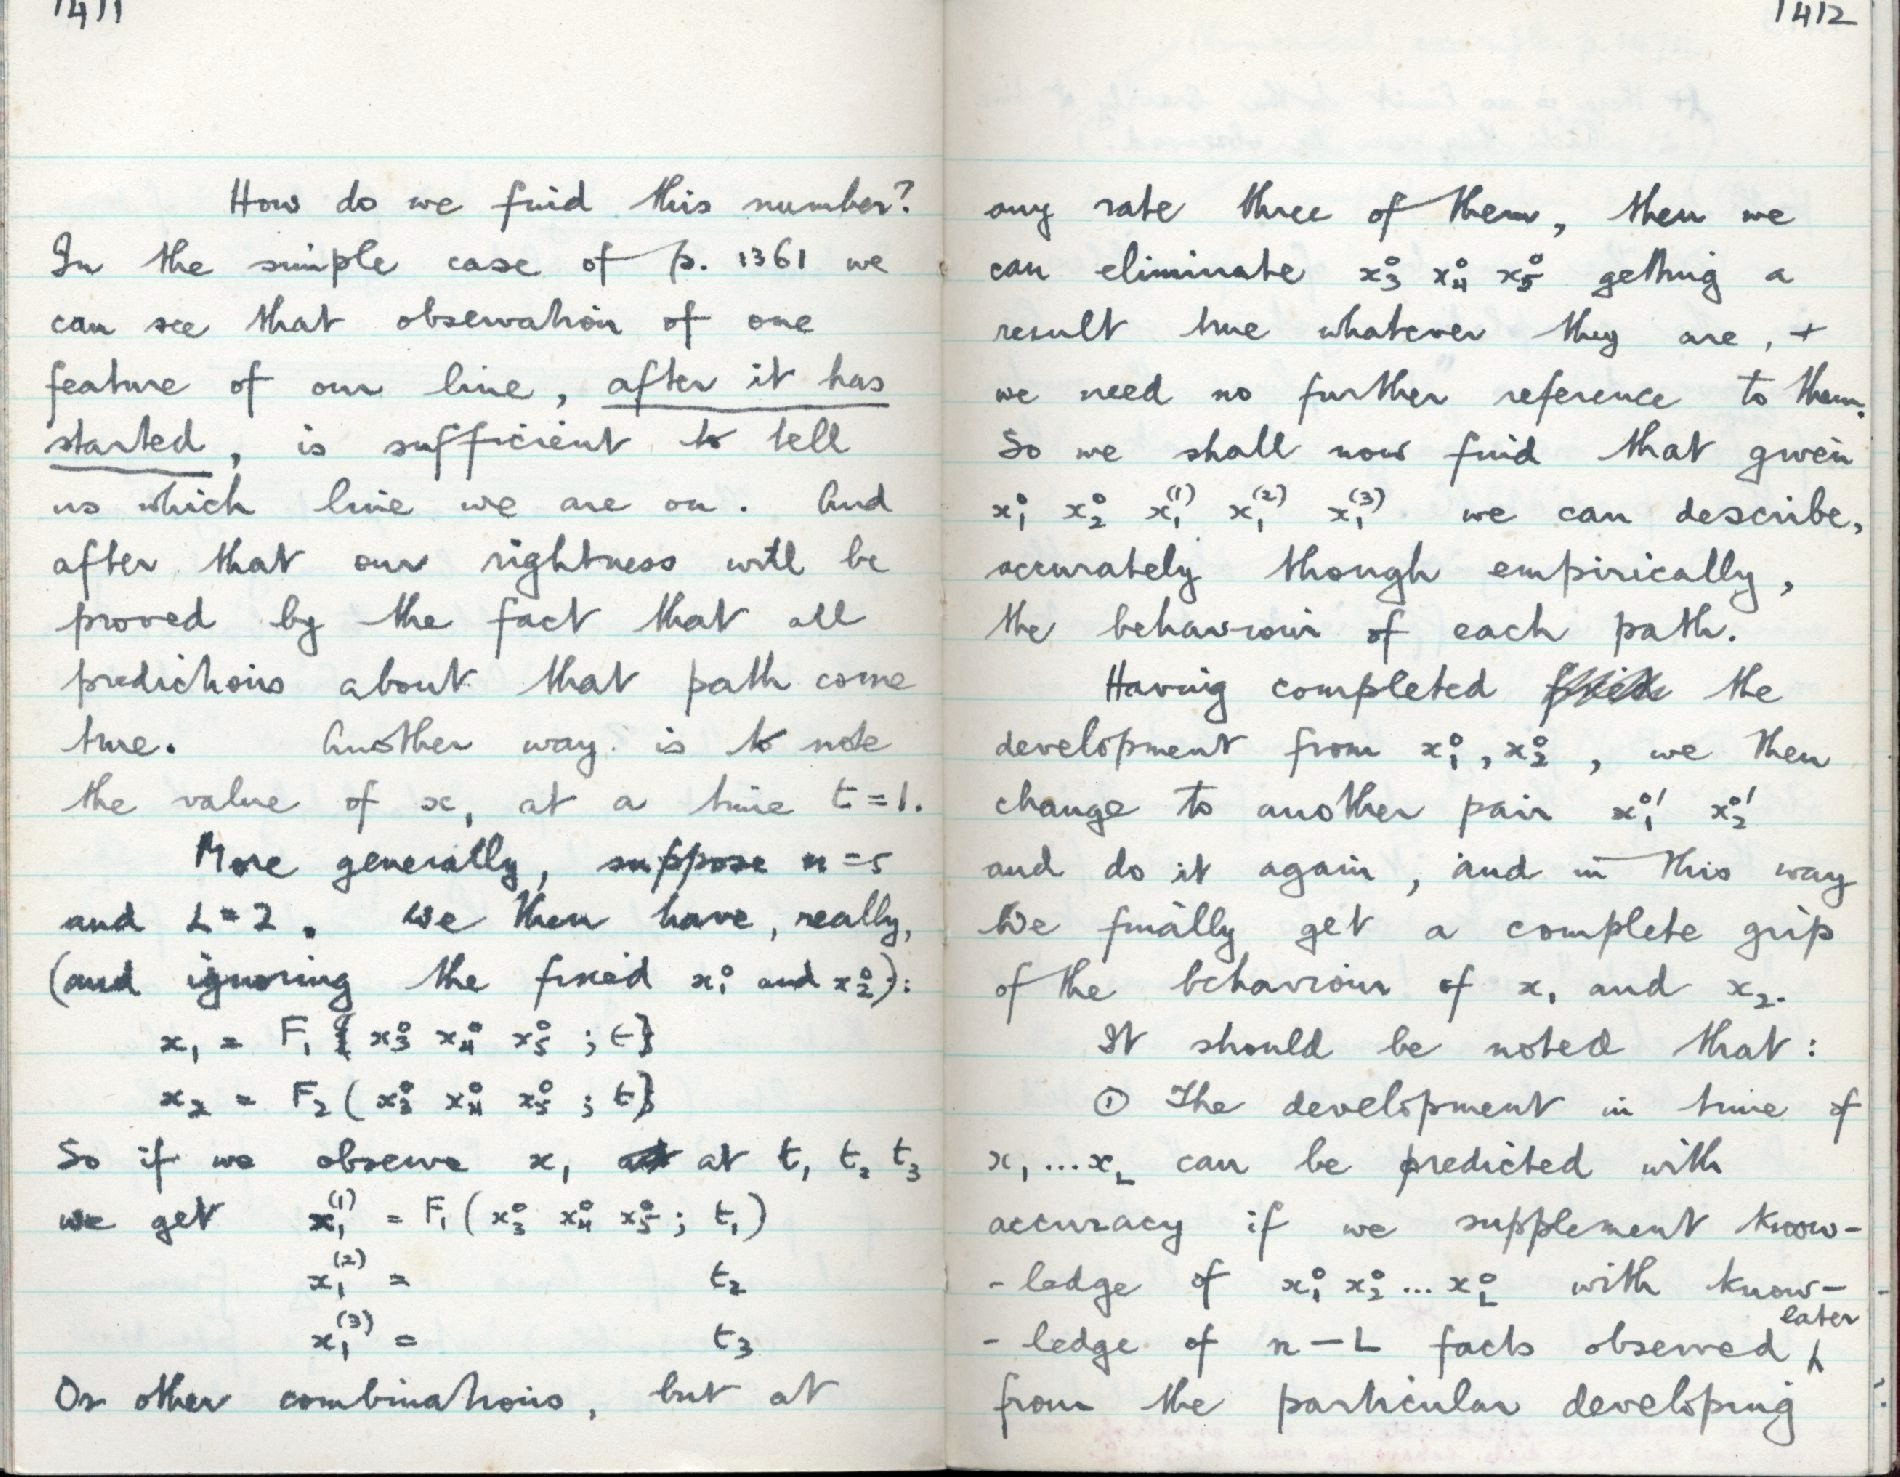 1411
How do we find this number?
In the simple case of p. 1361 we
can see that observation of one
feature of our line, after it has
started, is sufficient to tell
us which line we are on. And
after that our rightness will be
proved by the fact that all
predictions about that path come
true. Another way is to note
the value of x₁ at a time t = 1.
More generally, suppose n = 5
and L = 2. We then have, really,
(and ignoring the fixed x₁⁰ and x₂⁰):
x₁ = F₁{x₃⁰ x₄⁰ x₅⁰ ; t}
x₂ = F₂(x₃⁰ x₄⁰ x₅⁰ ; t}
So if we observe x₁ at t₁ t₂ t₃
we get x₁⁽¹⁾ = F₁(x₃⁰ x₄⁰ x₅⁰ ; t₁)
x₁⁽²⁾ = t₂
x₁⁽³⁾ = t₃
Or other combinations, but at
1412
any rate three of them, then we
can eliminate x₃⁰ x₄⁰ x₅⁰ getting a
result true whatever they are, +
we need no further reference to them.
So we shall now find that given
x₁⁰ x₂⁰ x₁⁽¹⁾ x₁⁽²⁾ x₁⁽³⁾ we can describe,
accurately though empirically,
the behaviour of each path.
Having completed the
development from x₁⁰, x₂⁰, we then
change to another pair x₁⁰′ x₂⁰′
and do it again, and in this way
we finally get a complete grip
of the behaviour of x₁ and x₂.
It should be noted that:
① The development in time of
x₁ ... x_L can be predicted with
accuracy if we supplement know-
-ledge of x₁⁰ x₂⁰ ... x_L⁰ with know-
later
-ledge of n – L facts observed ⁁
from the particular developing